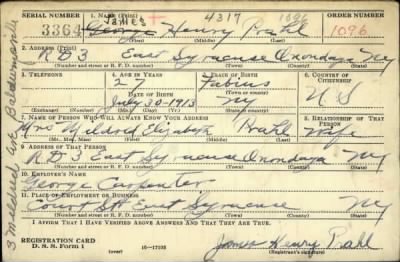 SERIAL NUMBER 1. NAME (Print) ORDER NUMBER
James 4317 1096
3364 George Henry Prahl 1096
(First) (Middle) (Last)
2. ADDRESS (Print)
R D 3 East Syracuse Onondaga NY
(Number and street or R. F. D. number) (Town) (County) (State)
3. TELEPHONE 4. AGE IN YEARS 5. PLACE OF BIRTH 6. COUNTRY OF CITIZENSHIP
27 Fabius
DATE OF BIRTH (Town or county)
July 30-1913 NY U S
(Exchange) (Number) (Mo.) (Day) (Yr.) (State or country)
7. NAME OF PERSON WHO WILL ALWAYS KNOW YOUR ADDRESS 8. RELATIONSHIP OF THAT PERSON
Mrs Mildred Elizabeth Prahl Wife
(Mr., Mrs., Miss) (First) (Middle) (Last)
9. ADDRESS OF THAT PERSON
R D 3 East Syracuse Onondaga NY
(Number and street or R. F. D. number) (Town) (County) (State)
10. EMPLOYER'S NAME
George Carpenter
11. PLACE OF EMPLOYMENT OR BUSINESS
Court St East Syracuse NY
(Number and street or R. F. D. number) (Town) (County) (State)
I AFFIRM THAT I HAVE VERIFIED ABOVE ANSWERS AND THAT THEY ARE TRUE.
REGISTRATION CARD
D. S. S. Form 1 (over) 16—17105
James Henry Prahl